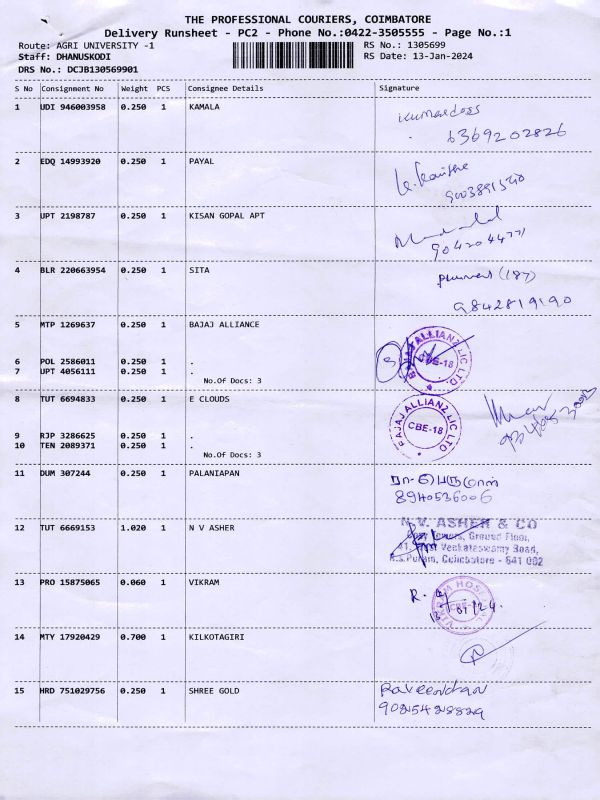 THE PROFESSIONAL COURIERS, COIMBATORE
Delivery Runsheet - PC2 - Phone No.:0422-3505555 - Page No.:1
Route: AGRI UNIVERSITY -1 RS No.: 1305699
Staff: DHANUSKODI RS Date: 13-Jan-2024
DRS No.: DCJB130569901
S No Consignment No Weight PCS Consignee Details Signature
1 UDI 946003958 0.250 1 KAMALA
Kumardoss
6369202826
2 EDQ 14993920 0.250 1 PAYAL
3 UPT 2198787 0.250 1 KISAN GOPAL APT
4 BLR 220663954 0.250 1 SITA
(187)
9842819190
5 MTP 1269637 0.250 1 BAJAJ ALLIANCE
3 BAJAJ ALLIANZ LIC LTD. CBE-18
6 POL 2586011 0.250 1 .
7 UPT 4056111 0.250 1 .
No.Of Docs: 3
8 TUT 6694833 0.250 1 E CLOUDS
BAJAJ ALLIANZ LIC LTD CBE-18
9 RJP 3286625 0.250 1 .
10 TEN 2089371 0.250 1 .
No.Of Docs: 3
11 DUM 307244 0.250 1 PALANIAPAN
8940536006
12 TUT 6669153 1.020 1 N V ASHER
N.V. ASHER & CO
Towers, Ground Floor,
41, West Venkataswamy Road,
R.S.Puram, Coimbatore - 641 002
13 PRO 15875065 0.060 1 VIKRAM
14 MTY 17920429 0.700 1 KILKOTAGIRI
15 HRD 751029756 0.250 1 SHREE GOLD
Raveendran
9025428829